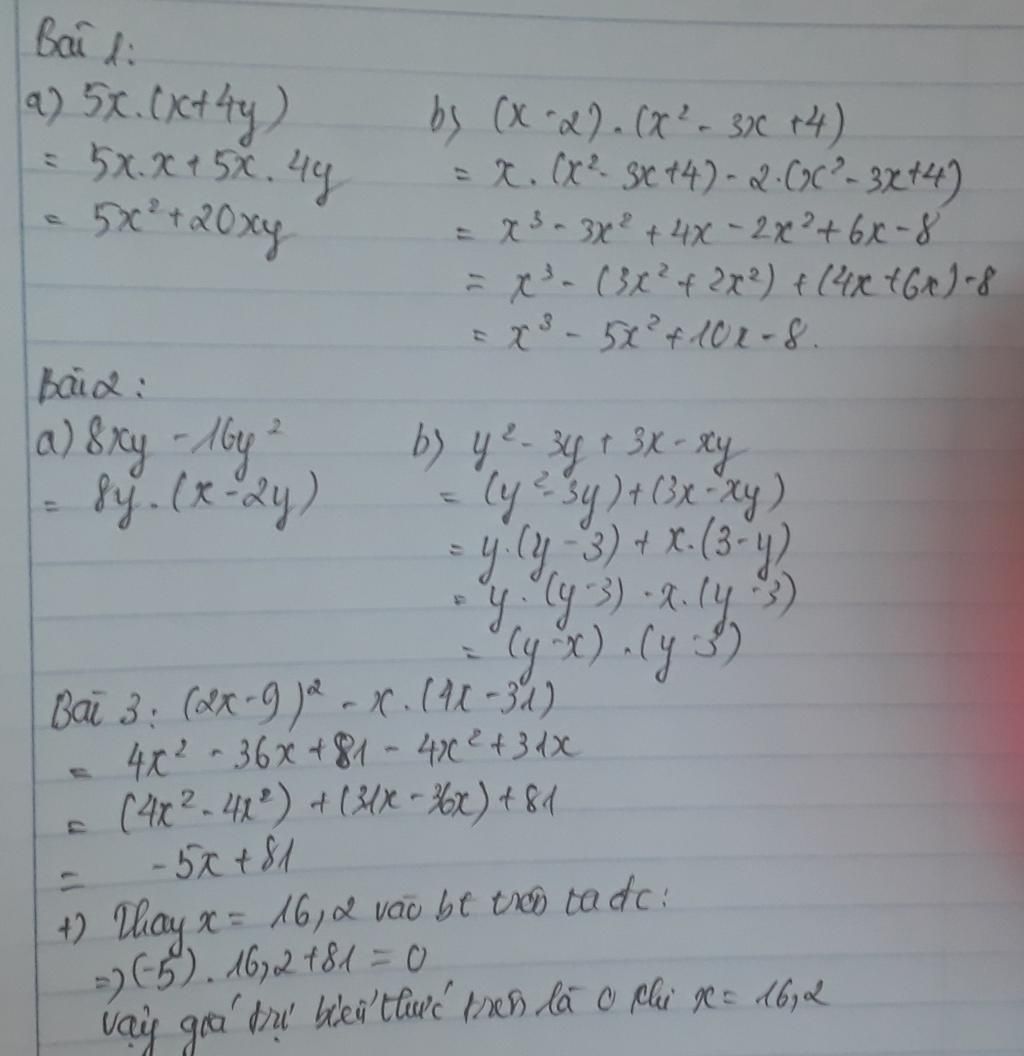 Bài 1:
a) 5x.(x+4y)
= 5x.x+5x.4y
= 5x²+20xy
b) (x-2).(x²-3x+4)
= x.(x²-3x+4)-2.(x²-3x+4)
= x³-3x²+4x-2x²+6x-8
= x³-(3x²+2x²)+(4x+6x)-8
= x³-5x²+10x-8.
Bài 2:
a) 8xy-16y²
= 8y.(x-2y)
b) y²-3y+3x-xy
= (y²-3y)+(3x-xy)
= y.(y-3)+x.(3-y)
= y.(y-3)-x.(y-3)
= (y-x).(y-3)
Bài 3: (2x-9)²-x.(4x-31)
= 4x²-36x+81-4x²+31x
= (4x²-4x²)+(31x-36x)+81
= -5x+81
+) Thay x=16,2 vào bt trên ta đc:
=> (-5).16,2+81=0
Vậy giá trị biểu thức trên là 0 khi x=16,2